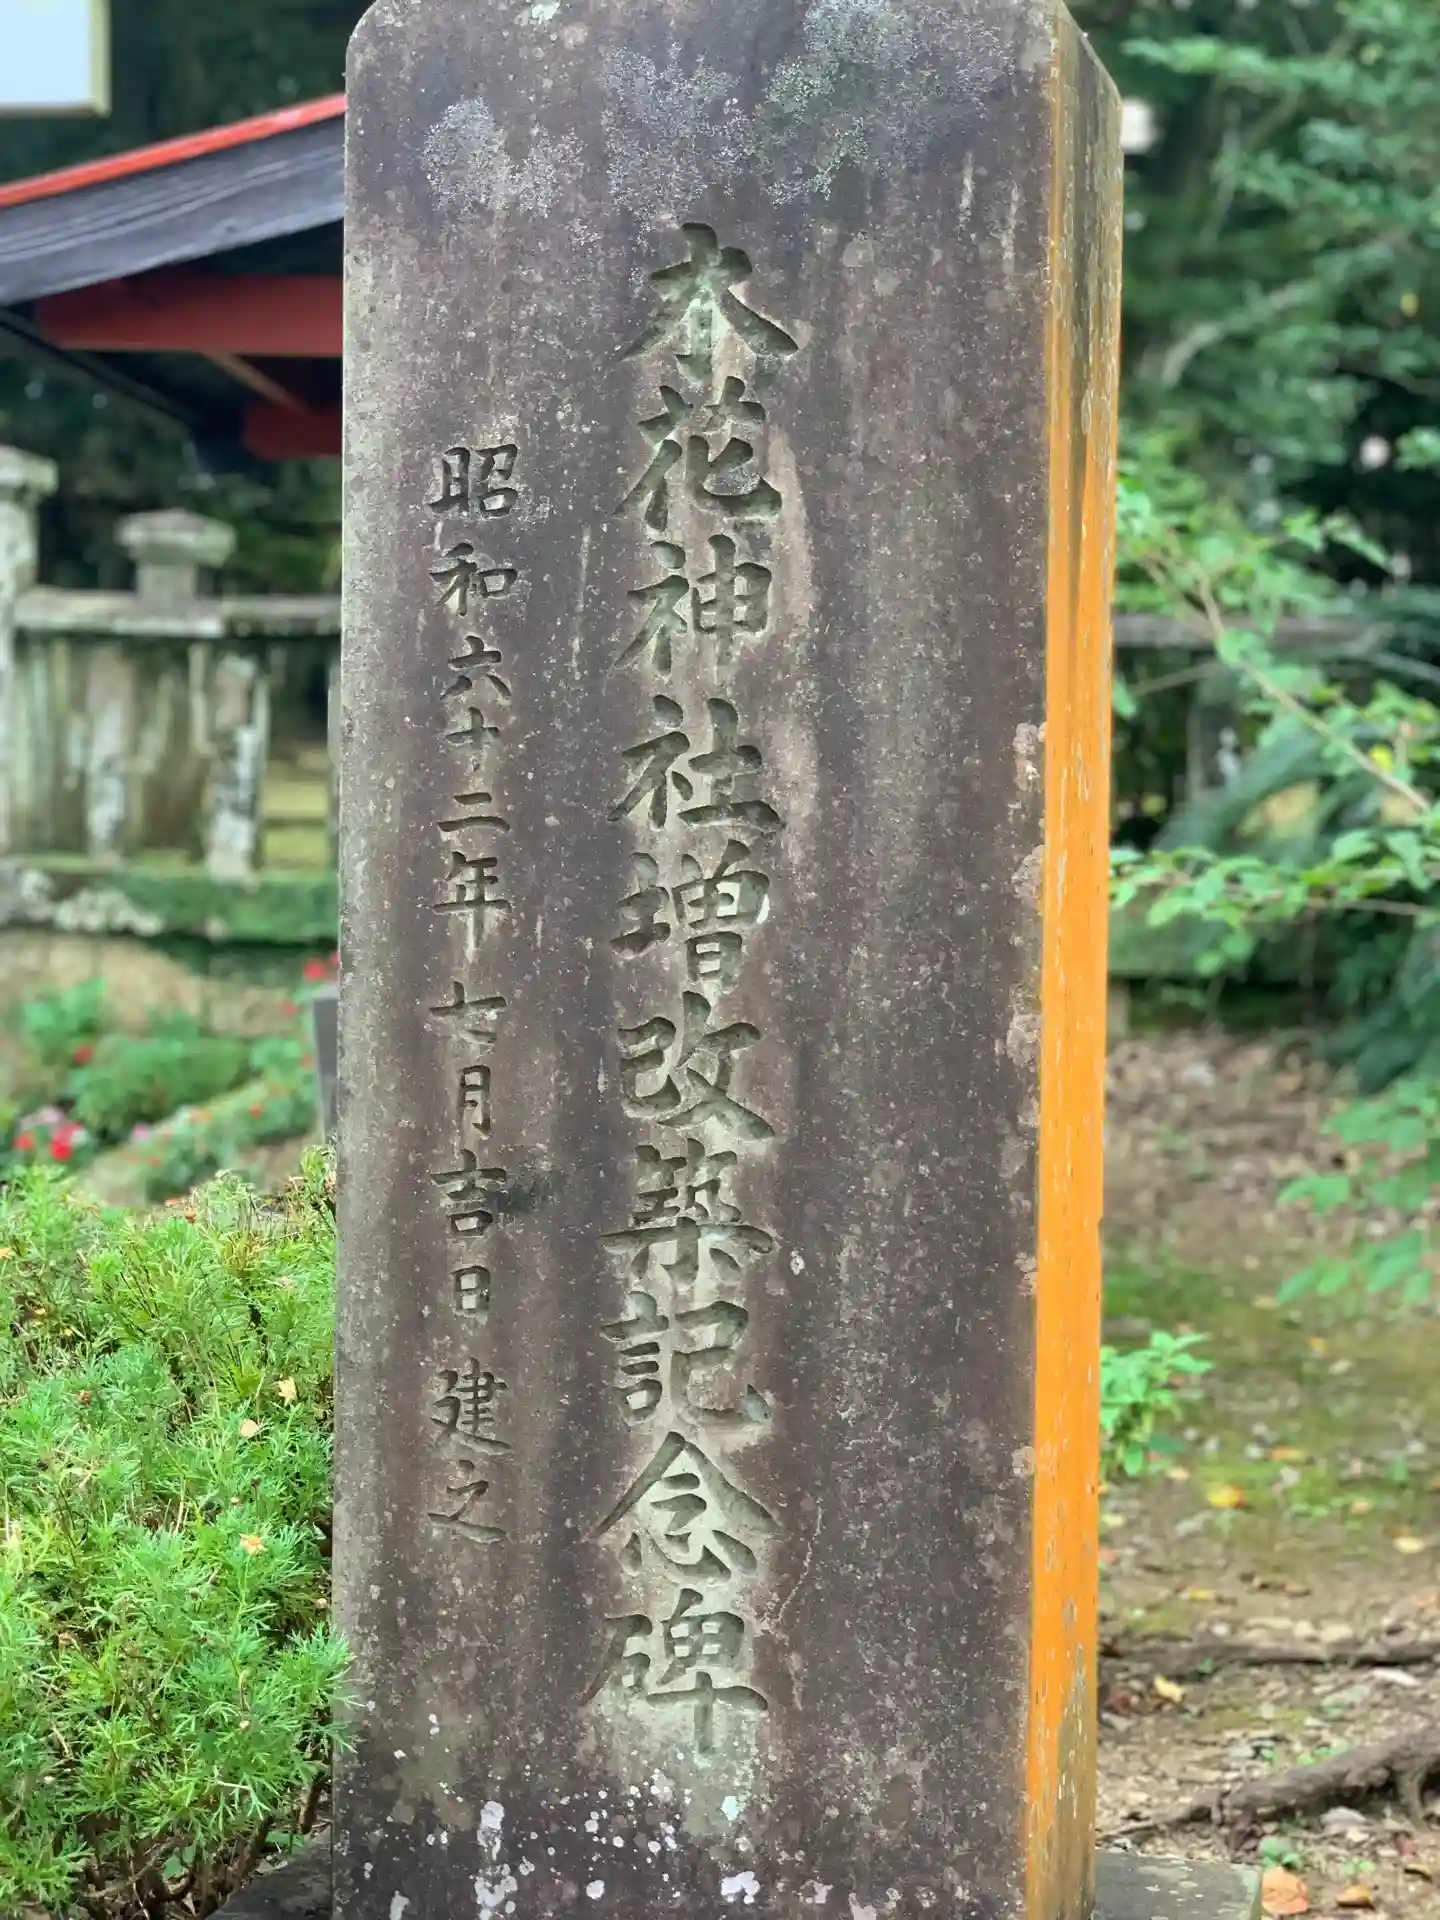 木花神社増改築記念碑
昭和六十二年七月吉日建之